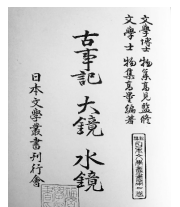 文學博士 物集高見監修
文學士 物集高量編著
古事記 大鏡 水鏡
日本文學叢書刊行會